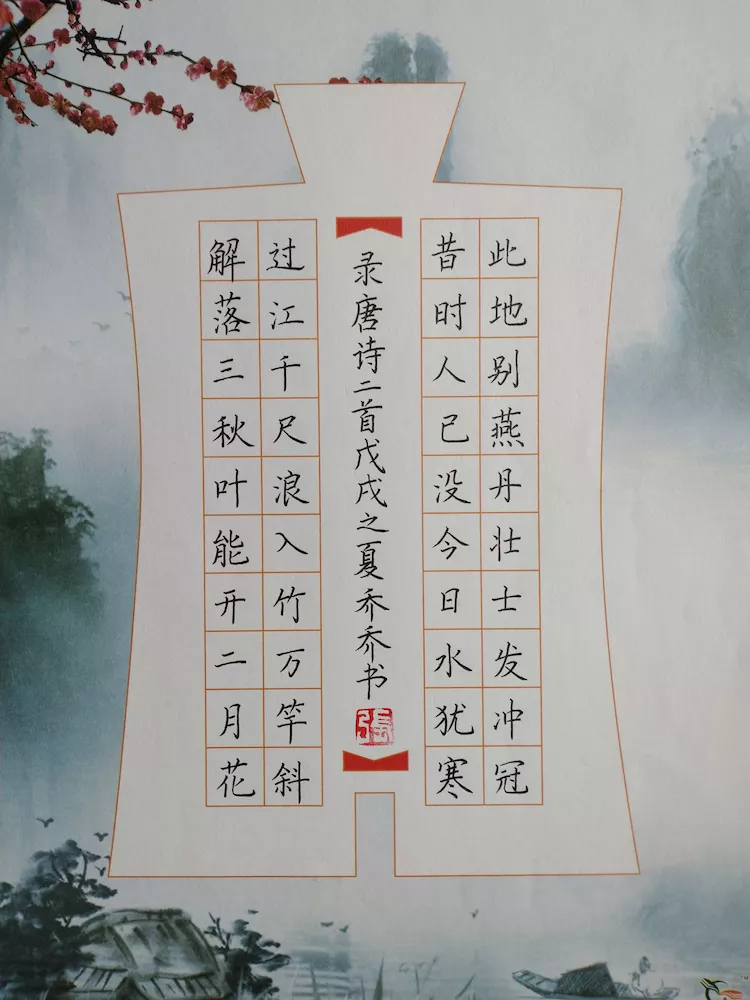 此地别燕丹壮士发冲冠
昔时人已没今日水犹寒
录唐诗二首戊戌之夏乔乔书
張
过江千尺浪入竹万竿斜
解落三秋叶能开二月花